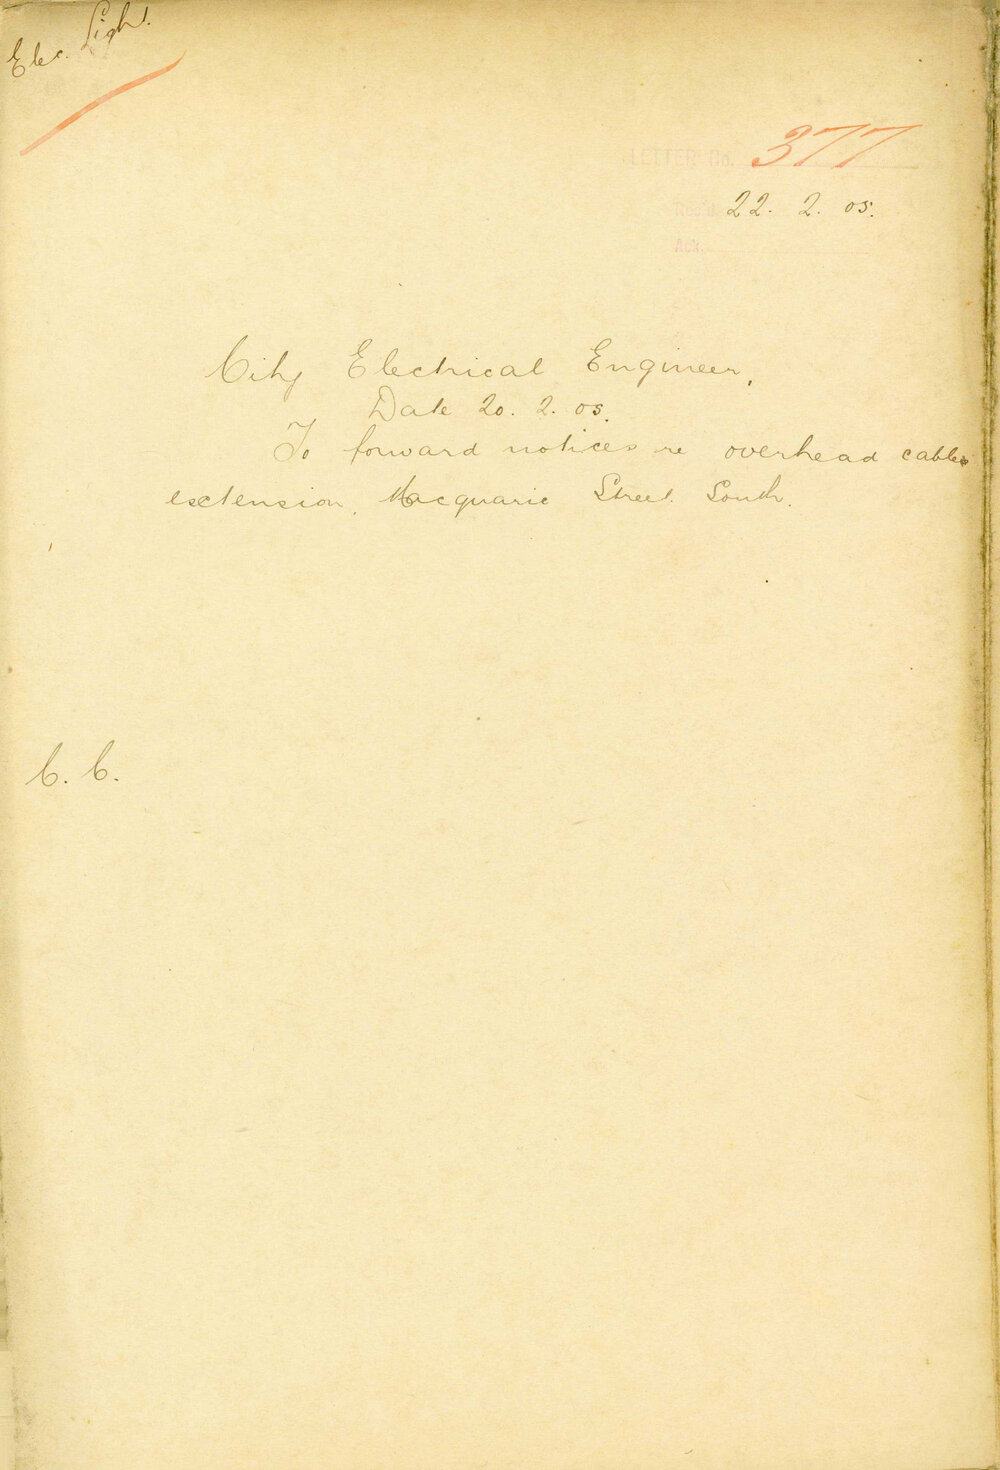 Elec. Light.
LETTER No. 377
Recd. 22. 2. 05.
Ack.
City Electrical Engineer,
Date 20. 2. 05.
To forward notices re overhead cables
extension, Macquarie Street South.
C. C.